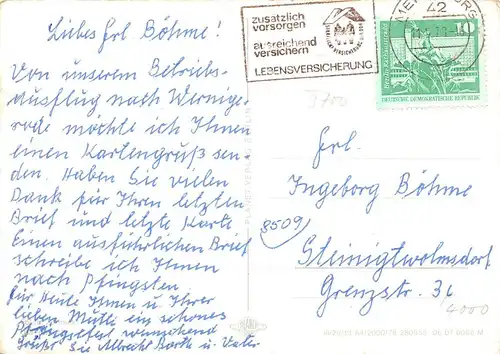 Liebes Frl. Böhme!
Von unserem Betriebs-
ausflug nach Wernige-
rode möchte ich Ihnen
einen Kartengruß sen-
den. Haben Sie vielen
Dank für Ihren letzten
Brief und letzte Karte.
Einen ausführlichen Brief
schreibe ich Ihnen
nach Pfingsten
Für Heute Ihnen u Ihrer
lieben Mutti ein schönes
Pfingstfest wünschend
Grüßt Sie Albrecht Barth u. Vater
zusätzlich
vorsorgen
ausreichend
versichern
LEBENSVERSICHERUNG
42
10
DEUTSCHE DEMOKRATISCHE REPUBLIK
3700
Frl.
Ingeborg Böhme
8509
Steinigtwolmsdorf
Grenzstr. 36
4000